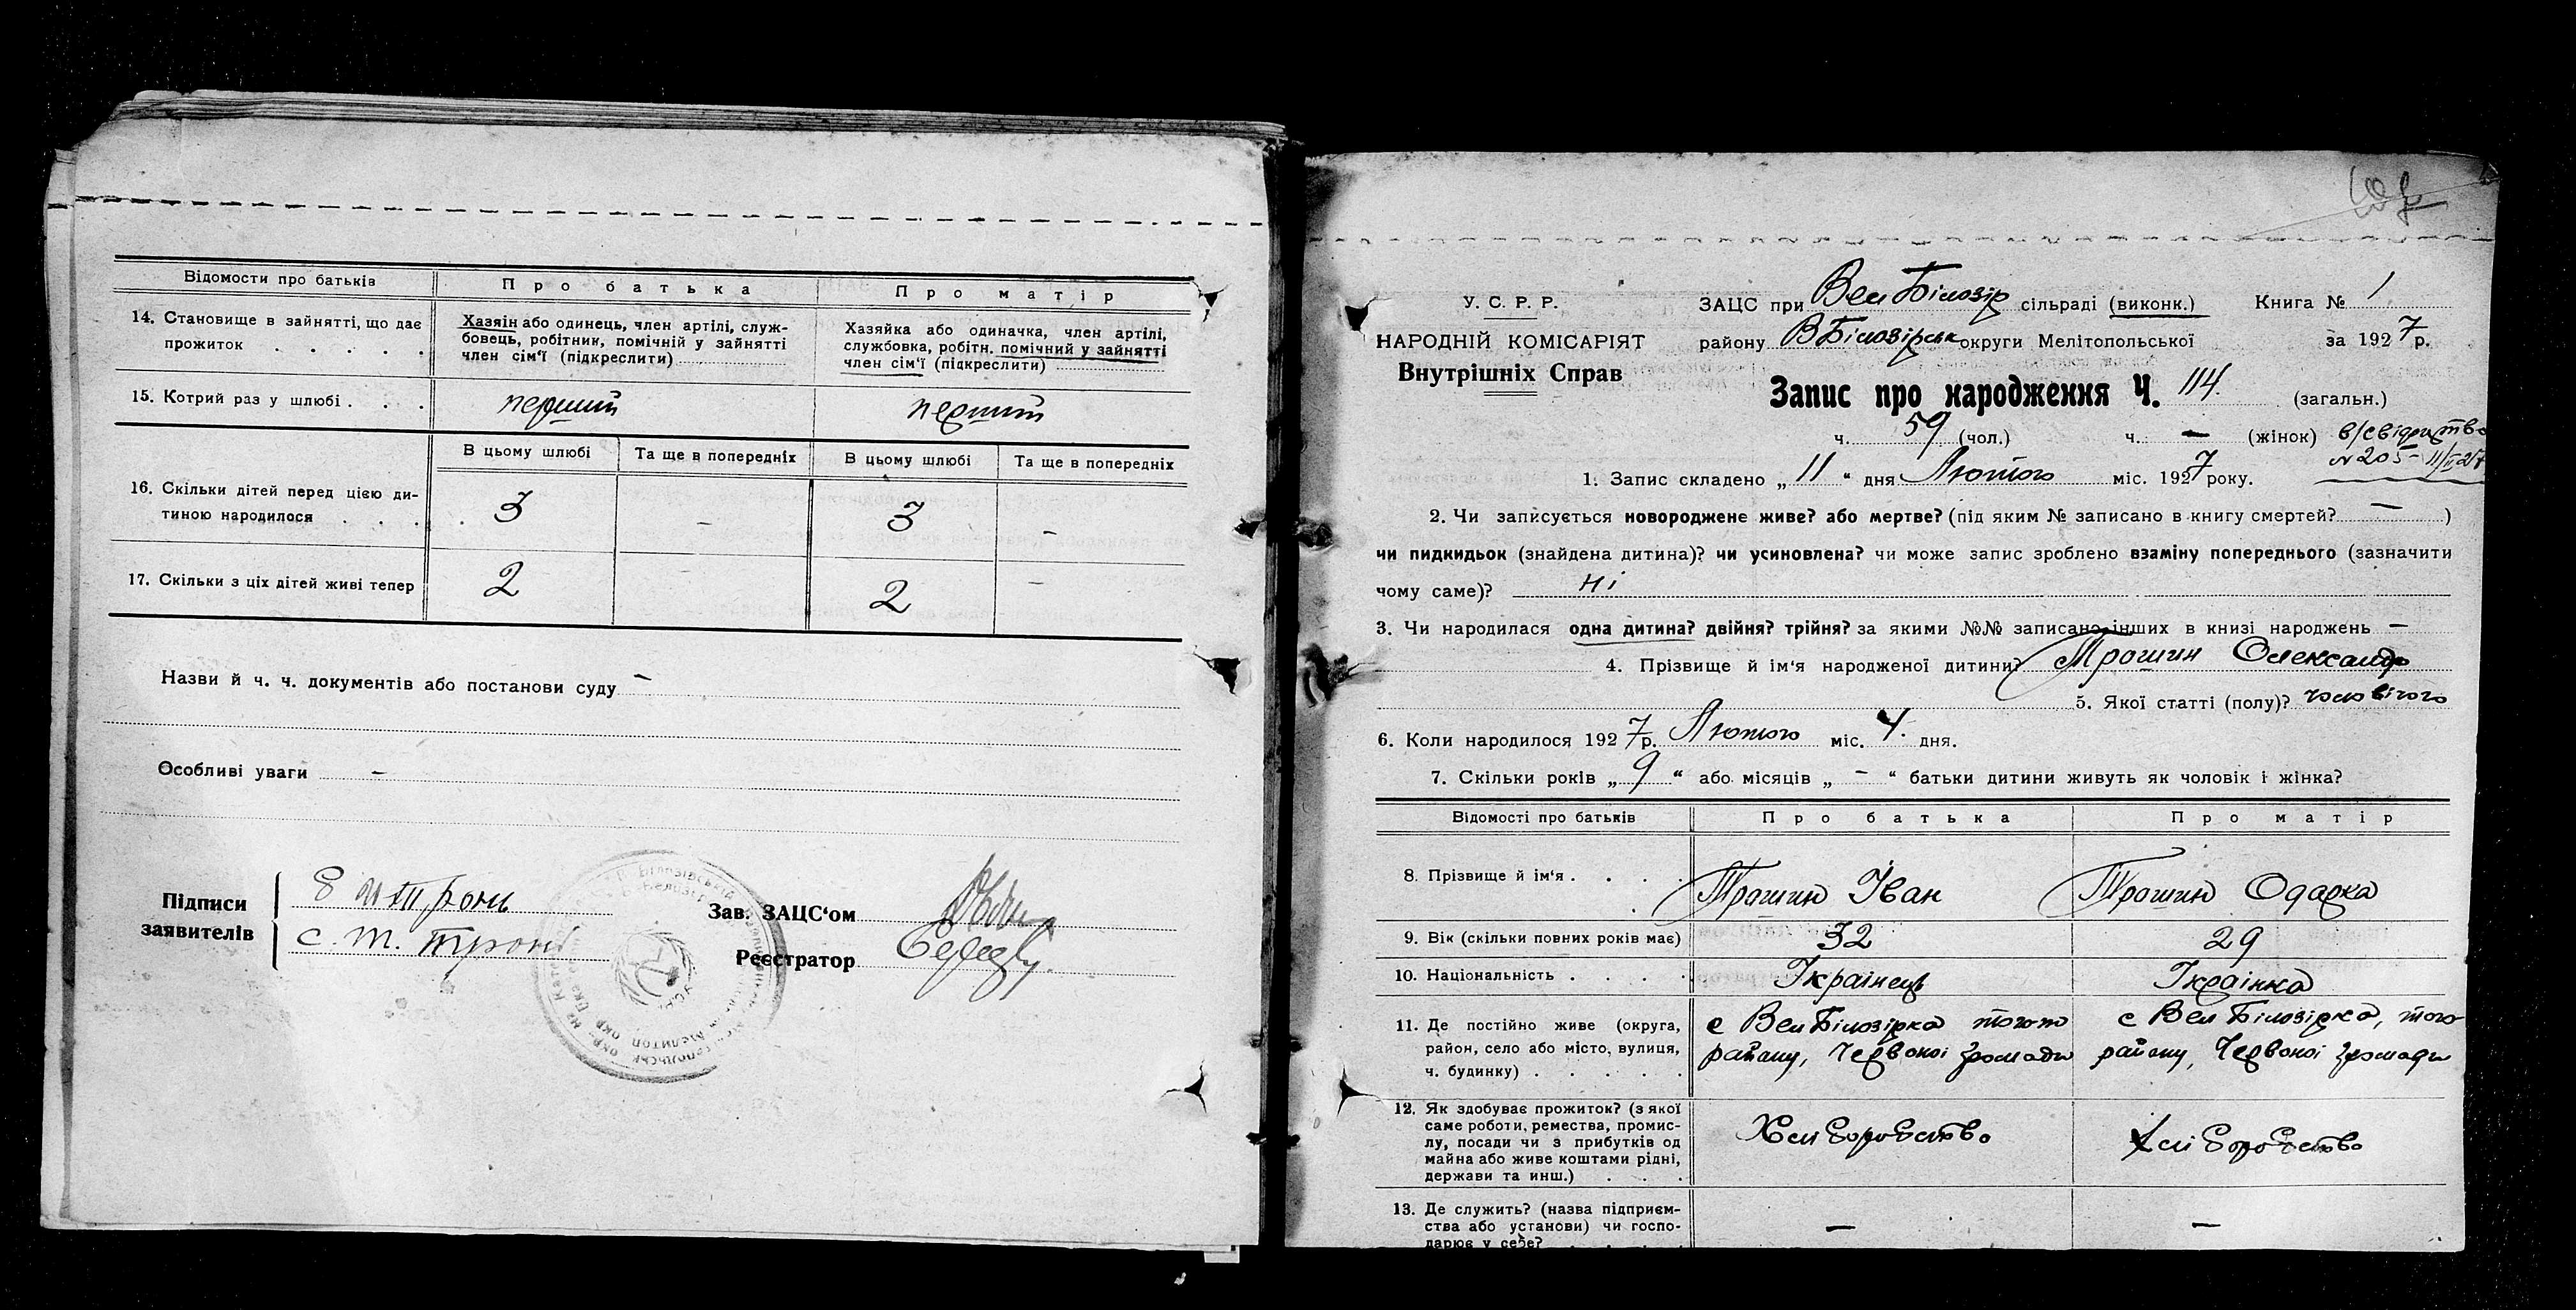 Відомости про батьків Про батька Про матір
14. Становище в зайнятті, що дає
прожиток . . . . .
Хазяін або одинець, член артілі, служ-
бовець, робітник, помічній у зайнятті
член сім'ї (підкреслити)
Хазяйка або одиначка, член артілі,
службовка, робітн. помічний у зайнятті
член сім'ї (підкреслити)
15. Котрий раз у шлюбі . . . перший перший
В цьому шлюбі Та ще в попередніх В цьому шлюбі Та ще в попередніх
16. Скільки дітей перед цією ди-
тиною народилося . . . . 3 - 3 -
17. Скільки з ціх дітей живі тепер 2 2 -
Назви й ч. ч. документів або постанови суду -
Особливі уваги -
Підписи
заявителів
Зав. ЗАЦС'ом
Реєстратор
У. С. Р. Р.
НАРОДНІЙ КОМІСАРІЯТ
Внутрішніх Справ
ЗАЦС при Вел Білозір сільраді (виконк.) Книга № 1
району ВБілозірськ округи Мелітопольської за 1927 р.
Запис про народження Ч. 114. (загальн.)
ч. 59 (чол.) ч. - (жінок)
№ 205 11/II 27
1. Запис складено „ 11 “ дня Лютого міс. 1927 року.
2. Чи записується новороджене живе? або мертве? (під яким № записано в книгу смертей? - )
чи пидкидьок (знайдена дитина)? чи усиновлена? чи може запис зроблено взаміну попереднього (зазначити
чому саме)? ні
3. Чи народилася одна дитина? двійня? трійня? за якими №№ записано інших в книзі народжень -
4. Прізвище й ім'я народженої дитини? Трошин Олександр
5. Якої статті (полу)? чоловічого
6. Коли народилося 1927 р. Лютого міс. 4. дня.
7. Скільки років „ 9 “ або місяців „ - “ батьки дитини живуть як чоловік і жінка?
Відомості про батьків Про батька Про матір
8. Прізвище й ім'я . . . . Трошин Іван Трошин Одарка
9. Вік (скільки повних років має) 32 29
10. Національність . . . . Українець Українка
11. Де постійно живе (округа,
район, село або місто, вулиця,
ч. будинку) . . . . .
с Вел Білозірка того
району, Червоної громади
с Вел Білозірка, того
району, Червоної громади
12. Як здобуває прожиток? (з якої
саме роботи, ремества, промис-
лу, посади чи з прибутків од
майна або живе коштами рідні,
держави та инш.) . . .
Хліборобство Хліборобство
13. Де служить? (назва підприєм-
ства або установи) чи госпо-
дарює у себе? . . . - -